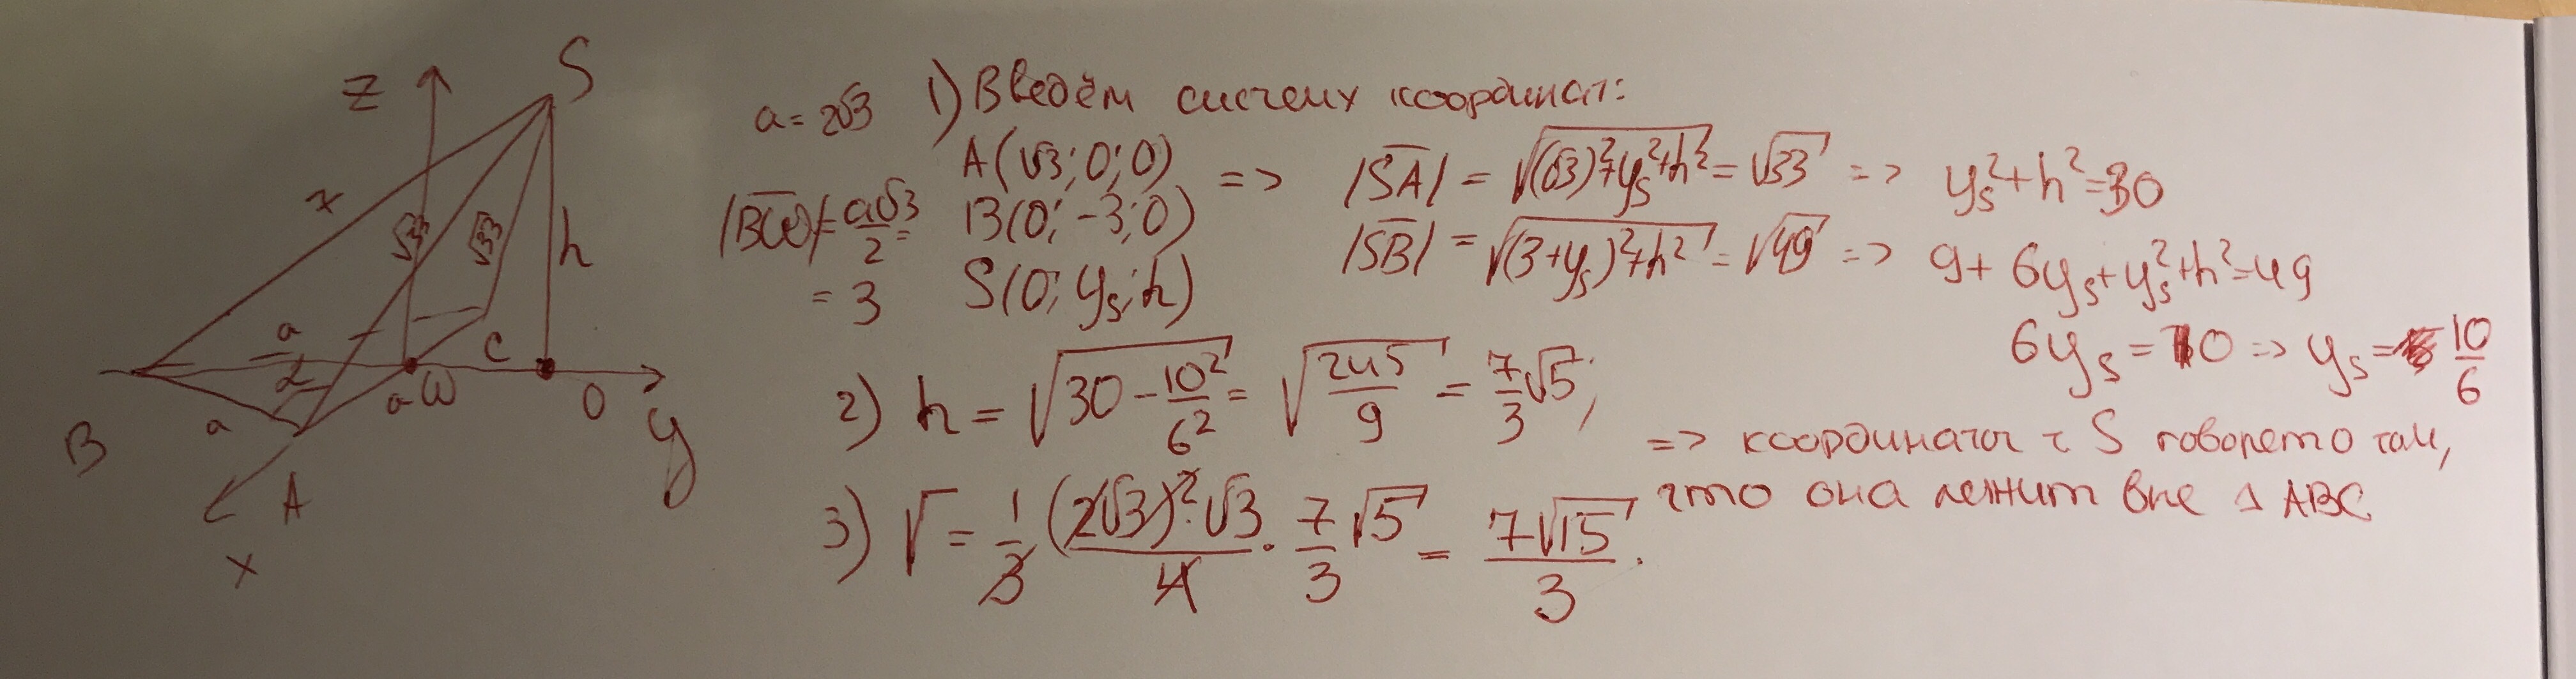 z
S
x
√33
√33
h
a
2
a
a
ω
C
O
y
B
A
x
a = 2√3
|B̅ω̅| = a√3/2 =
= 3
1) Введём систему координат:
A(√3; 0; 0)
B(0; -3; 0)
S(0; yₛ; h)
=> |S̅A̅| = √((√3)²+yₛ²+h²) = √33 => yₛ²+h²=30
|S̅B̅| = √((3+yₛ)²+h²) = √49 => 9+6yₛ+yₛ²+h²=49
6yₛ = 10 => yₛ = 10/6
2) h = √(30 - 10²/6²) = √(245/9) = 7/3 √5;
=> координаты т S говорят о том,
что она лежит вне Δ ABC
3) V = 1/3 (2√3)²·√3/4 · 7/3 √5 = 7√15/3.